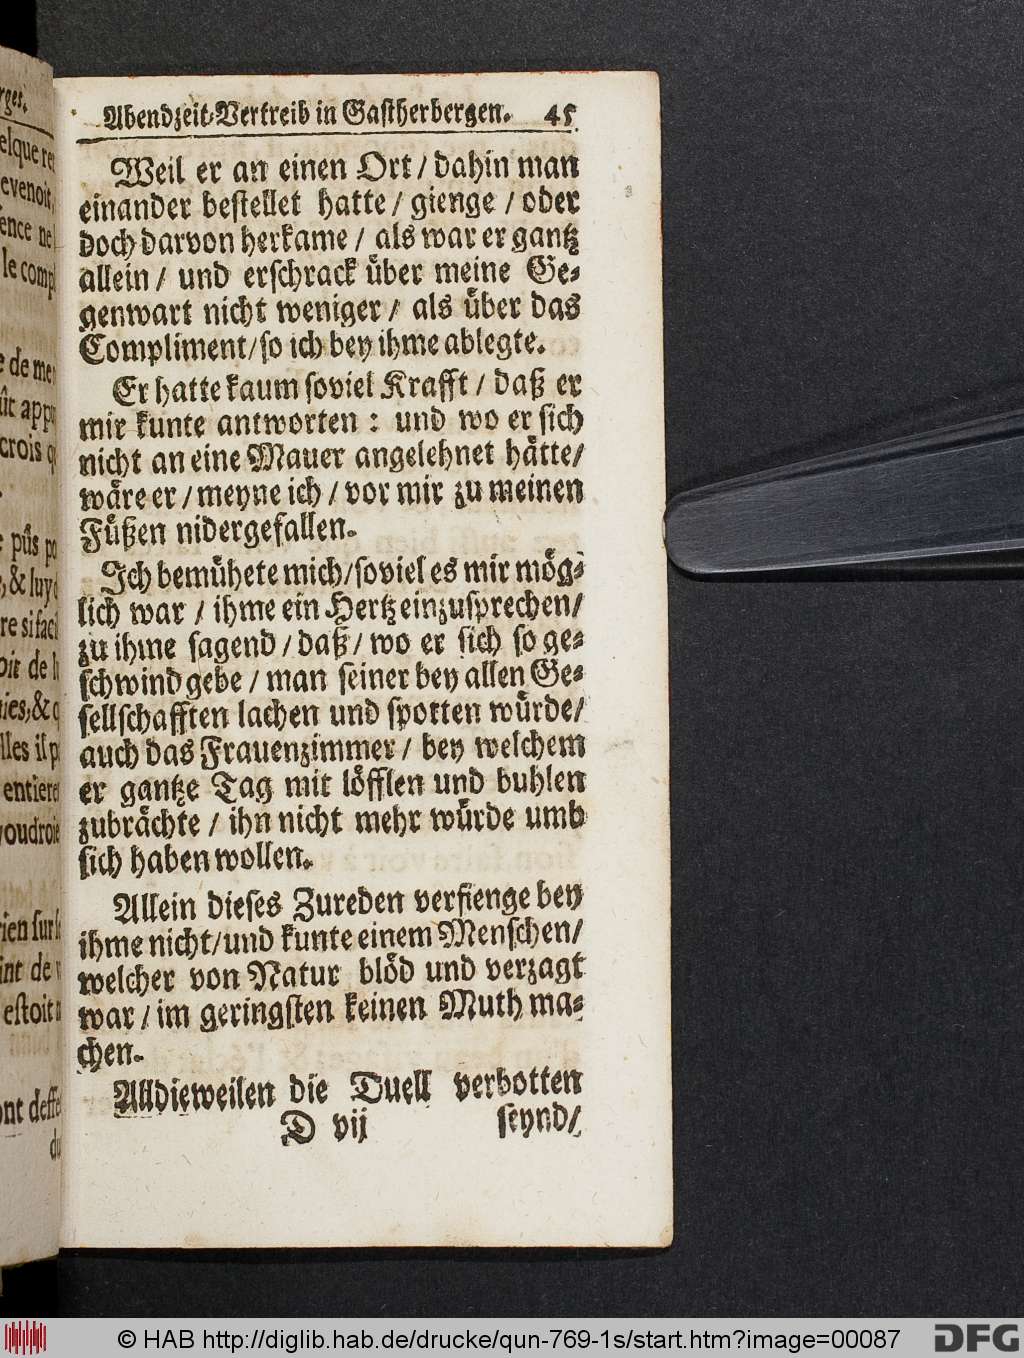 Abendzeit-Vertreib in Gastherbergen. 45
Weil er an einen Ort / dahin man
einander bestellet hatte / gienge / oder
doch darvon herkame / als war er gantz
allein / und erschrack über meine Ge-
genwart nicht weniger / als über das
Compliment / so ich bey ihme ablegte.
Er hatte kaum soviel Krafft / daß er
mir kunte antworten : und wo er sich
nicht an eine Mauer angelehnet hätte /
wäre er / meyne ich / vor mir zu meinen
Füßen nidergefallen.
Ich bemühete mich / soviel es mir mög-
lich war / ihme ein Hertz einzusprechen /
zu ihme sagend / daß / wo er sich so ge-
schwind gebe / man seiner bey allen Ge-
sellschafften lachen und spotten würde /
auch das Frauenzimmer / bey welchem
er gantze Tag mit löfflen und buhlen
zubrächte / ihn nicht mehr würde umb
sich haben wollen.
Allein dieses Zureden verfienge bey
ihme nicht / und kunte einem Menschen /
welcher von Natur blöd und verzagt
war / im geringsten keinen Muth ma-
chen.
Alldieweilen die Duell verbotten
D vij seynd /
elque
evenoit,
ence ne
le compl
de me
ût app
crois
pûs
& luy
re si
oit de
mies, &
lles il
entiere
voudroi
rien sur
int de
estoit
ont deffe
du
© HAB http://diglib.hab.de/drucke/qun-769-1s/start.htm?image=00087
DFG